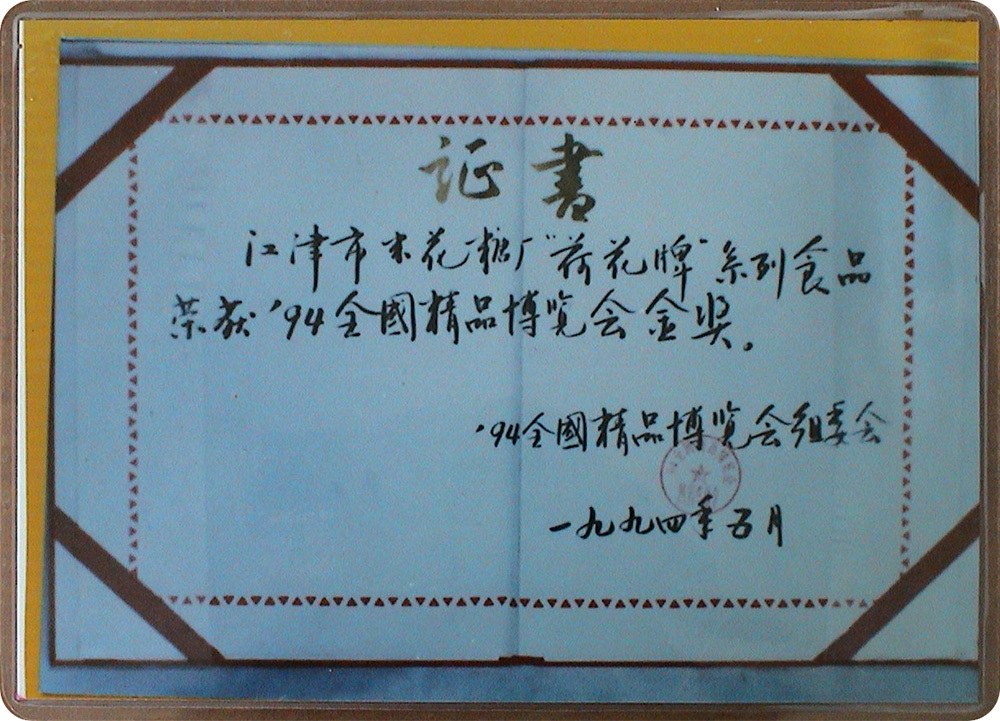 证書
江津市米花糖厂"荷花牌"系列食品
荣获'94全國精品博览会金奖。
'94全國精品博览会组委会
一九九四年五月